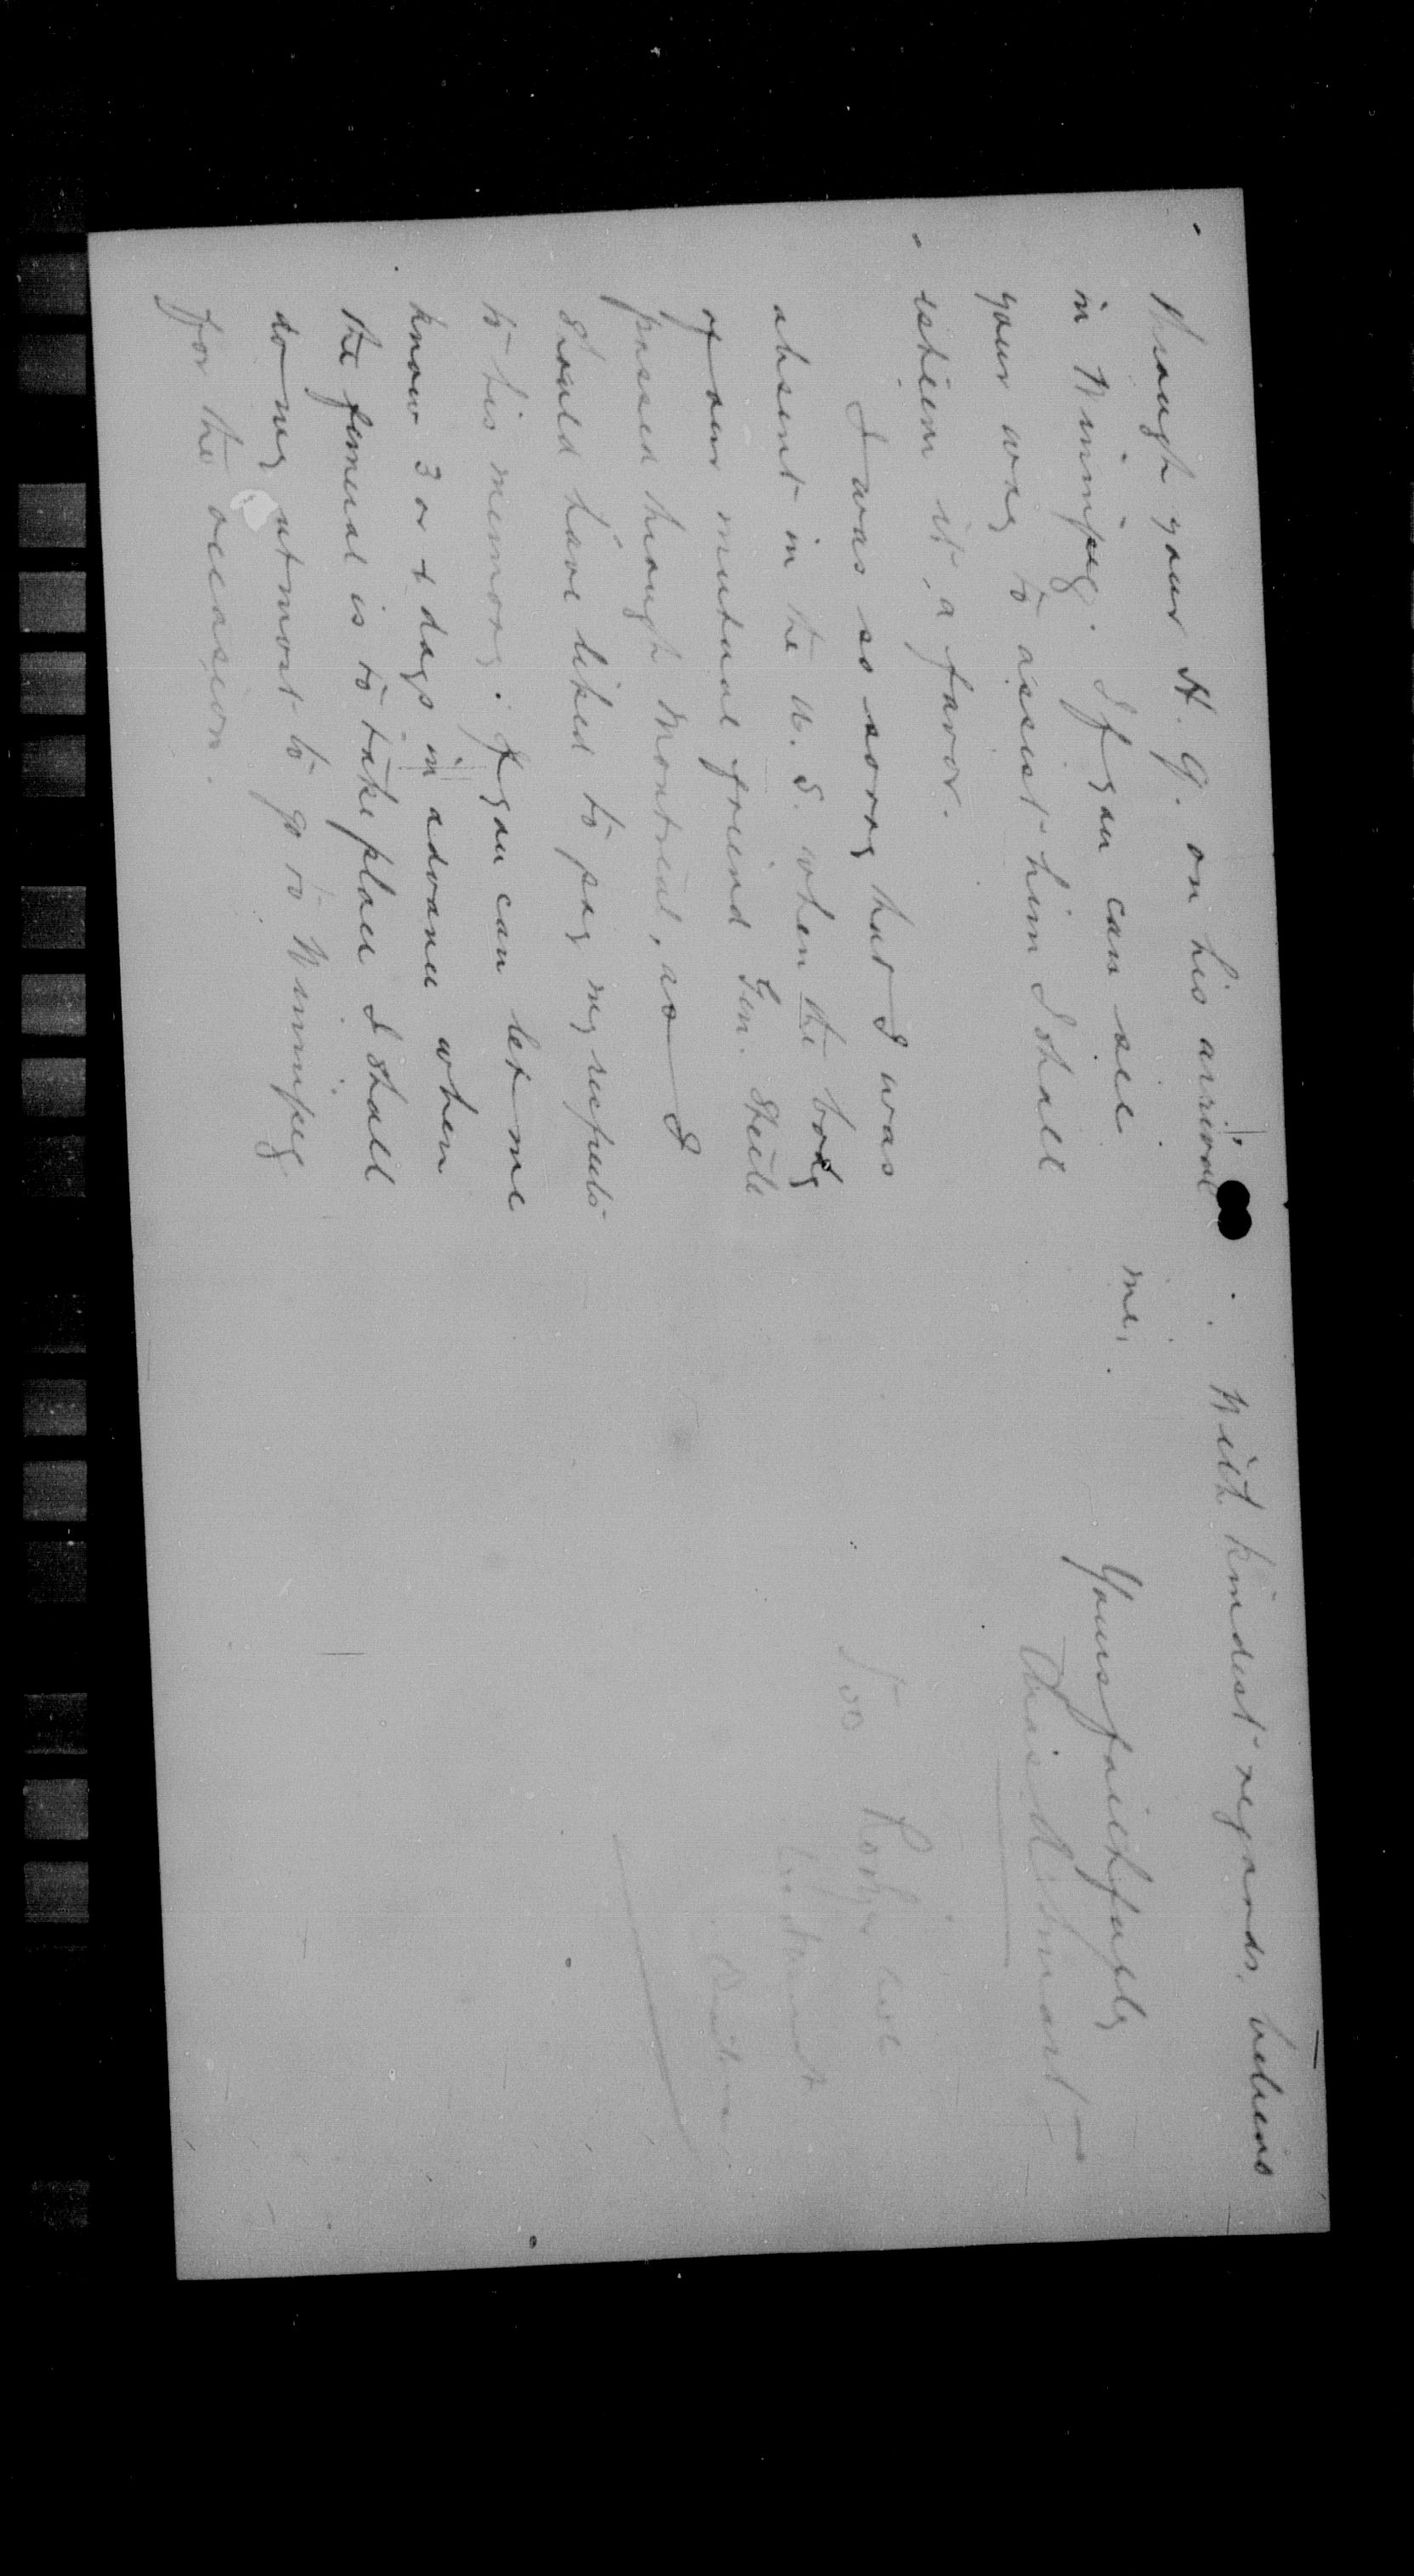 through your H. Q. on his arrival
in Winnipeg. If you can see
your way to assist him I shall
esteem it, a favor.
I was so sorry that I was
absent in the U. S. when the body
of our mutual friend Gen. Steele
passed through Montreal, as I
should have liked to pay my respects
to his memory. If you can let me
know 3 or 4 days in advance when
the funeral is to take place I shall
do my utmost to go to Winnipeg
for the occasion.
With kindest regards, believe
me,
Yours faithfully